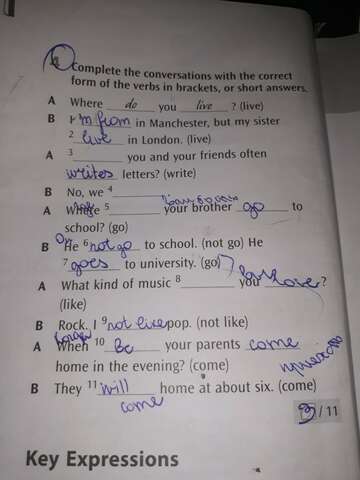 4 Complete the conversations with the correct
form of the verbs in brackets, or short answers.
A Where do you live ? (live)
B I 'm from in Manchester, but my sister
2 live in London. (live)
A 3 you and your friends often
writes letters? (write)
B No, we 4
A Where 5 your brother go to
school? (go)
B He 6 not go to school. (not go) He
7 goes to university. (go)
A What kind of music 8 you love ?
(like)
B Rock. I 9 not live pop. (not like)
A When 10 Do your parents come
home in the evening? (come)
B They 11 will home at about six. (come)
come
3/11
Key Expressions